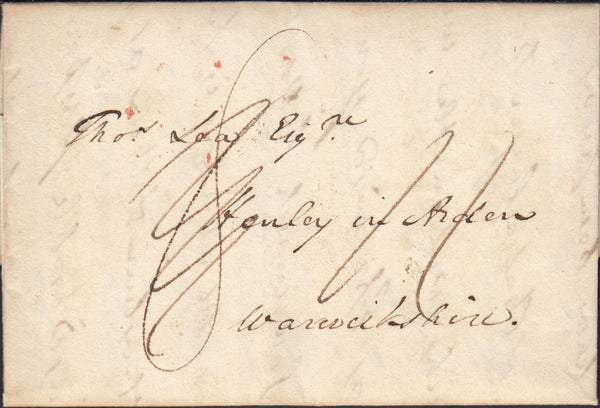 Thos. Lea Esqre
Henley in Arden
Warwickshire.